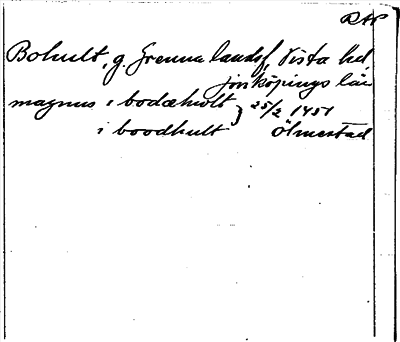 RAP
Bohult, g. Grenna landsf, Vista hd,
Jönköpings län
magnus i bodæhwlt } 25/2 1451
i boodhult Ölmestad